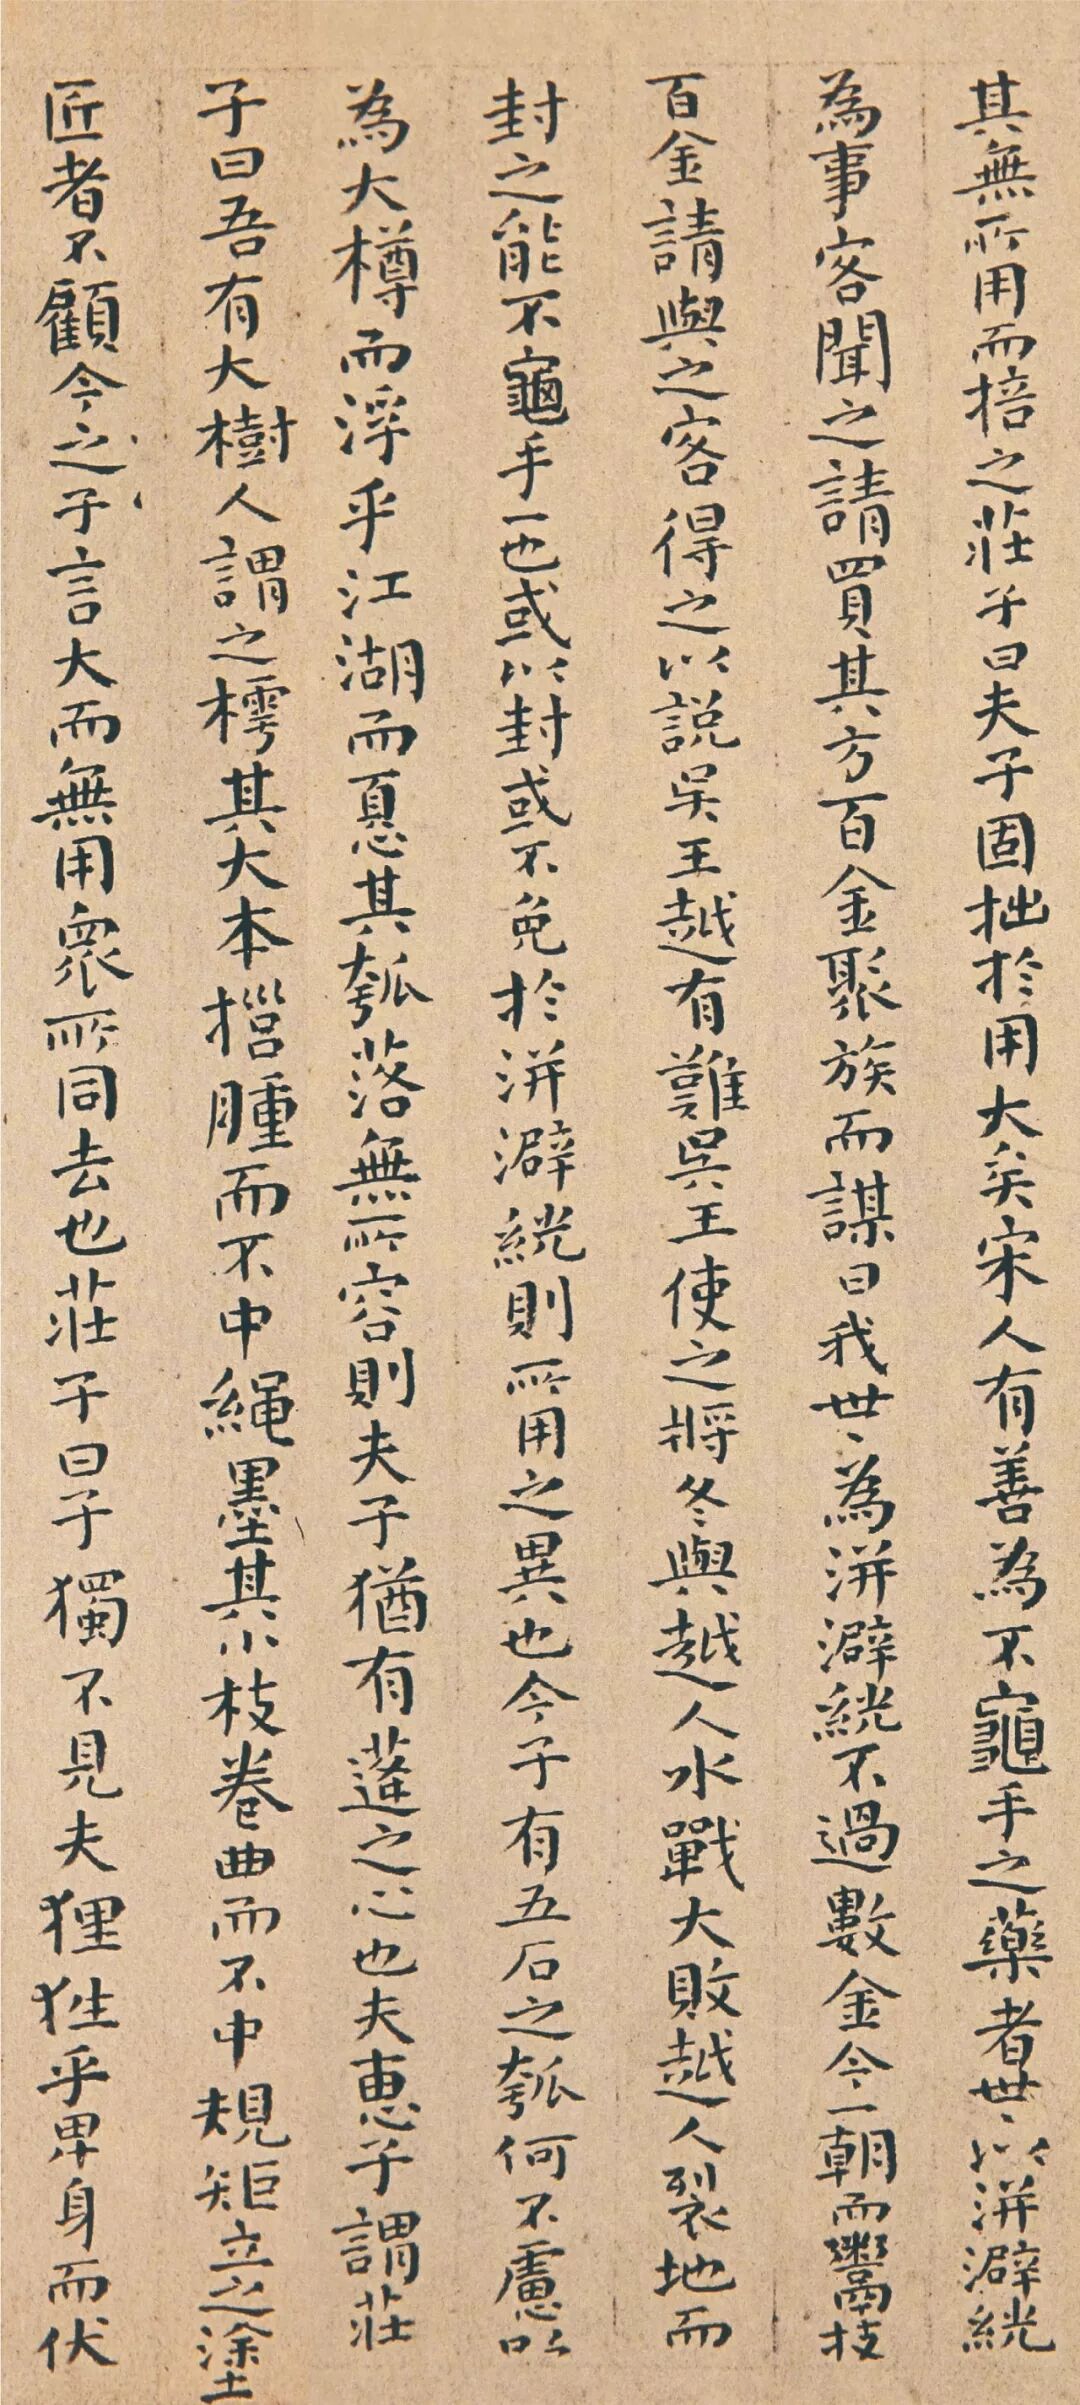 其無所用而掊之莊子曰夫子固拙於用大矣宋人有善為不龜手之藥者世〻以洴澼絖
為事客聞之請買其方百金聚族而謀曰我世〻為洴澼絖不過數金今一朝而鬻技
百金請與之客得之以說吳王越有難吳王使之將冬與越人水戰大敗越人裂地而
封之能不龜手一也或以封或不免於洴澼絖則所用之異也今子有五石之瓠何不慮以
為大樽而浮乎江湖而憂其瓠落無所容則夫子猶有蓬之心也夫惠子謂莊
子曰吾有大樹人謂之樗其大本擁腫而不中繩墨其小枝卷曲而不中規矩立之塗
匠者不顧今之子言大而無用眾所同去也莊子曰子獨不見夫狸狌乎卑身而伏